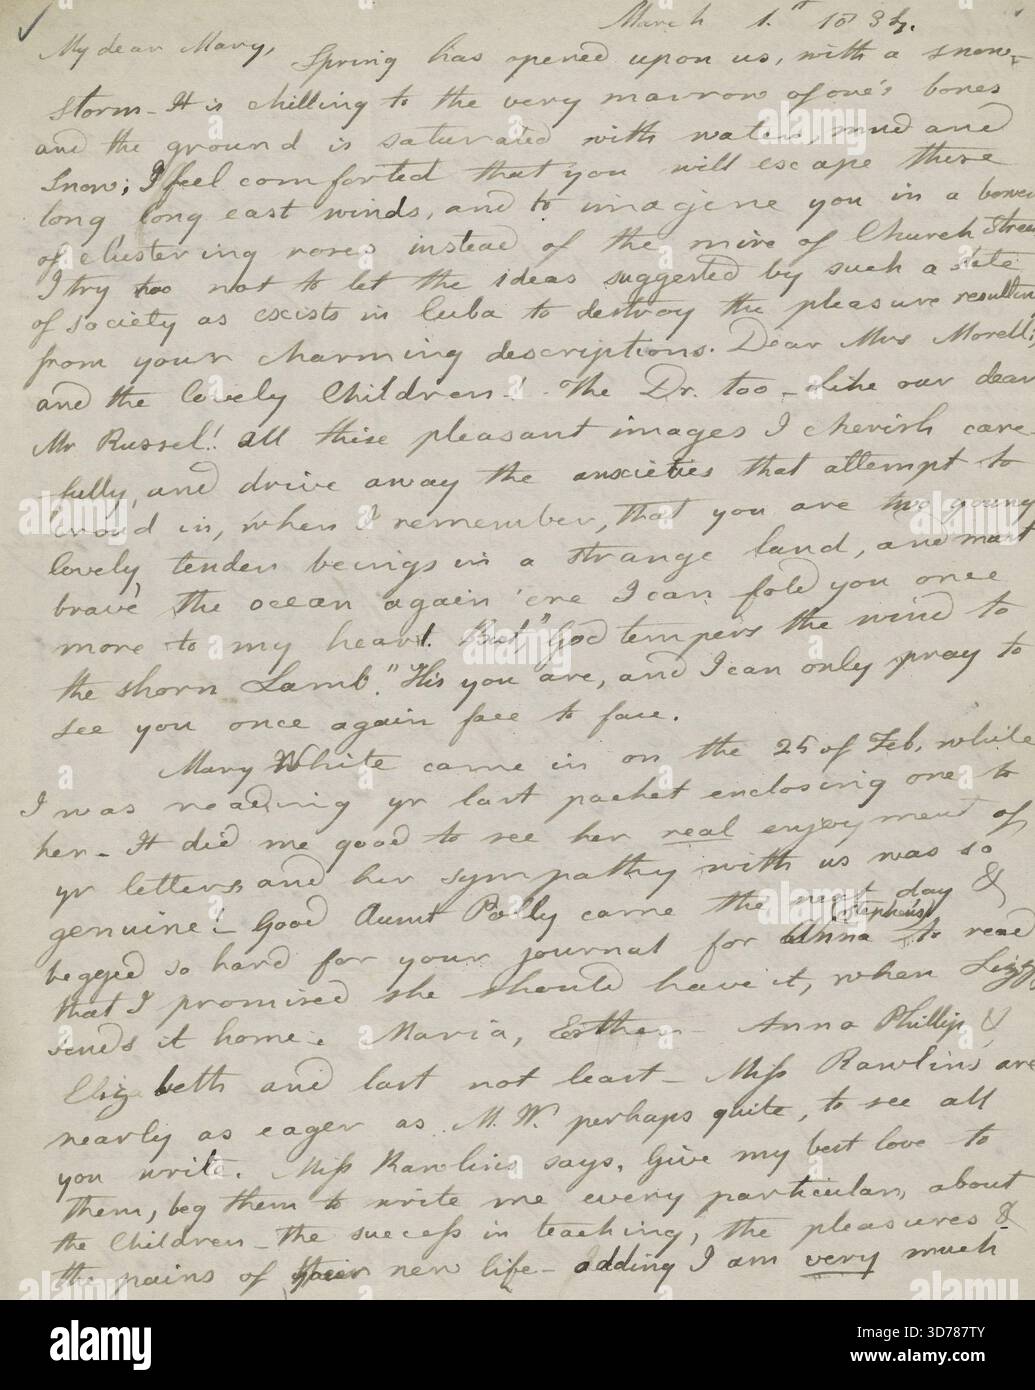 March 1.st 1834.
My dear Mary, Spring has opened upon us, with a snow-
storm - It is chilling to the very marrow of one's bones
and the ground is saturated with water, mud and
Snow; I feel comforted that you will escape these
long long east winds, and to imagine you in a bower
of clustering roses instead of the mire of Church Street
I try too not to let the ideas suggested by such a state
of society as exists in Cuba to destroy the pleasure resulting
from your charming descriptions. Dear Mrs Morell,
and the lovely Children! - The Dr. too - like our dear
Mr Russel! all these pleasant images I cherish care-
fully, and drive away the anxieties that attempt to
croud in, when I remember, that you are two young
lovely, tender beings in a strange land, and must
brave the ocean again 'ere I can fold you once
more to my heart. But, "God tempers the wind to
the shorn Lamb." His you are, and I can only pray to
see you once again face to face.
Mary White came in on the 25 of Feb. while
I was reading yr last packet enclosing one to
her - It did me good to see her real enjoyment of
yr letters and her sympathy with us was so
genuine! - Good Aunt Polly came the next day &
begged so hard for your journal for Anna Stephens to read
that I promised she should have it, when Lizzy
sends it home. Maria, Esther - Anna Phillip, &
Elizabeth and last not least - Miss Rawlins are
nearly as eager as M. W. perhaps quite, to see all
you write. Miss Rawlins says, Give my best love to
them, beg them to write me every particular, about
the Children - the success in teaching, the pleasures &
the pains of their new life - adding I am very much
alamy
Image ID: 3D787TY
www.alamy.com